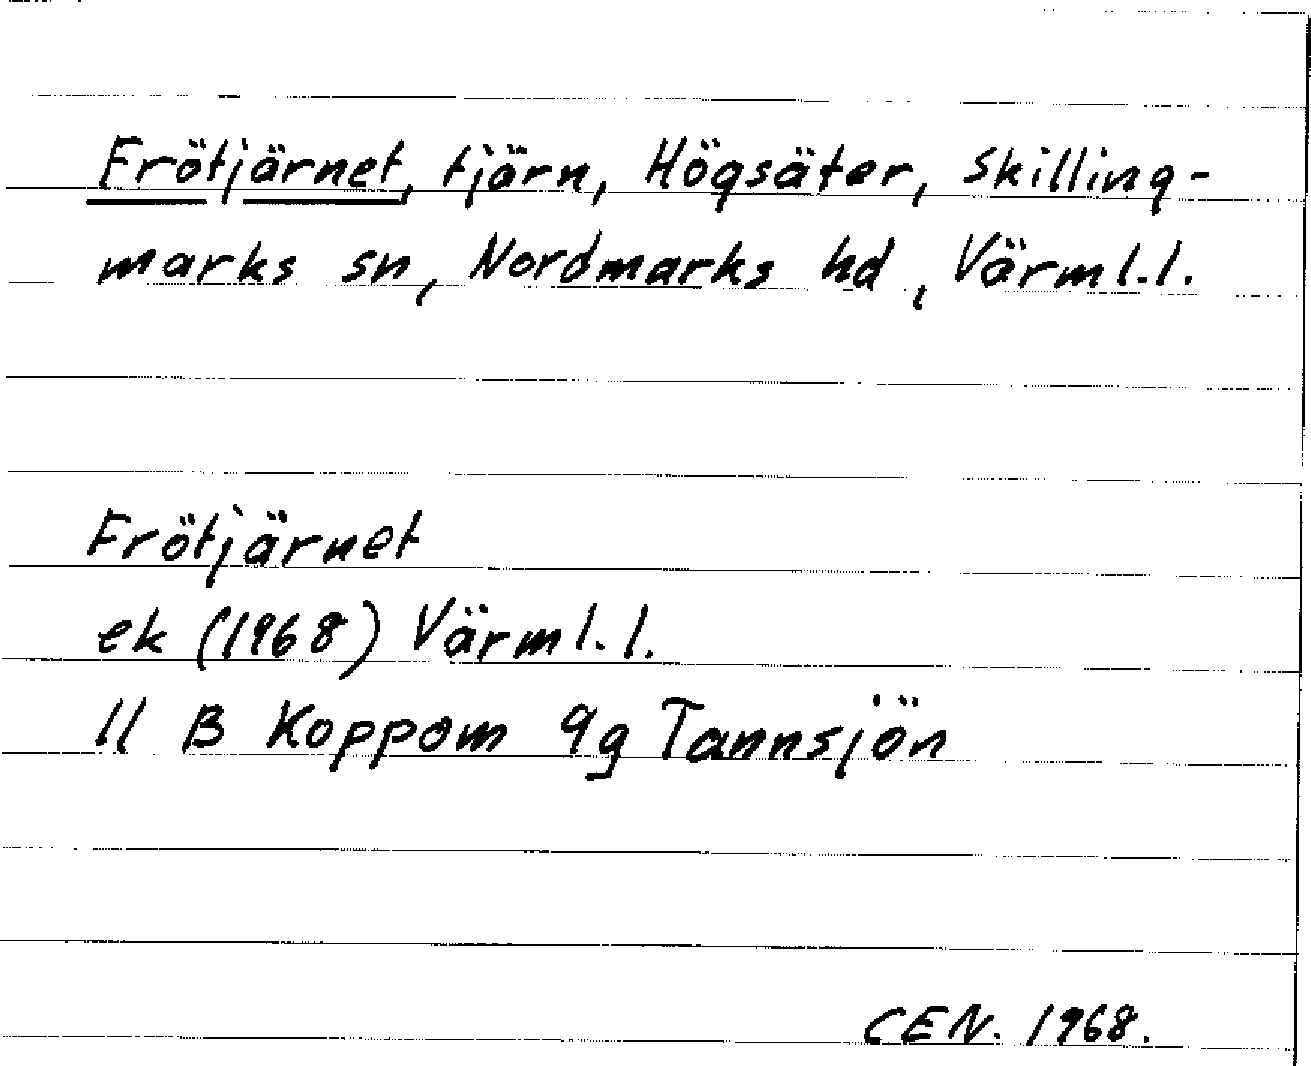 Frötjärnet, tjärn, Högsäter, Skilling-
marks sn, Nordmarks hd, Värml.l.
Frötjärnet
ek (1968) Värml.l.
11 B Koppom 9g Tannsjön
CEN. 1968.